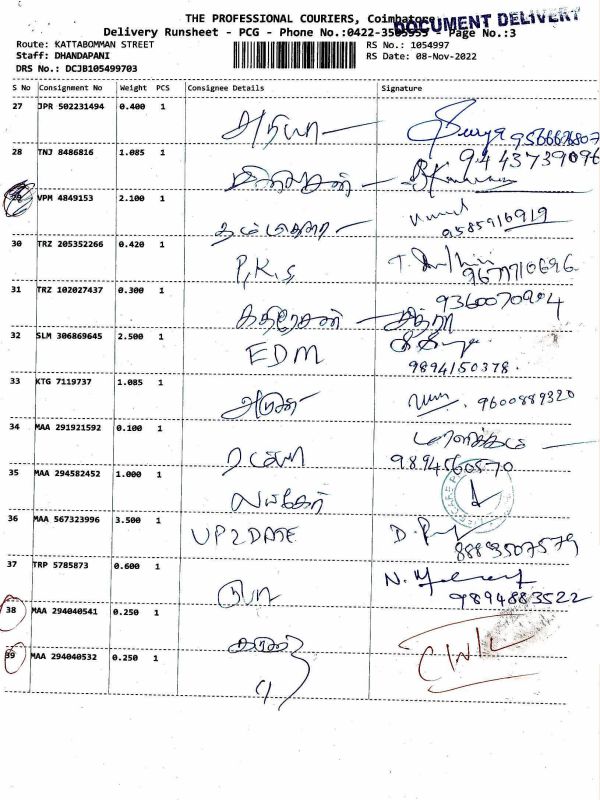 THE PROFESSIONAL COURIERS, Coimbatore
DOCUMENT DELIVERY
Delivery Runsheet - PCG - Phone No.:0422-3505955 - Page No.:3
Route: KATTABOMMAN STREET
RS No.: 1054997
Staff: DHANDAPANI
RS Date: 08-Nov-2022
DRS No.: DCJB105499703
S No Consignment No Weight PCS Consignee Details Signature
27 JPR 502231494 0.400 1 Surya
28 TNJ 8486816 1.085 1 9443739096
VPM 4849153 2.100 1 9585916919
30 TRZ 205352266 0.420 1 P.K.S
31 TRZ 102027437 0.300 1 கதிரேசன் சித்ரா 9360070904
32 SLM 306869645 2.500 1 EDM 9894150378.
33 KTG 7119737 1.085 1 9600889320
34 MAA 291921592 0.100 1 ரம்யா 9894560570
35 MAA 294582452 1.000 1
36 MAA 567323996 3.500 1 UP2DATE 8883507579
37 TRP 5785873 0.600 1 ரூபா 9894883522
38 MAA 294040541 0.250 1
39 MAA 294040532 0.250 1